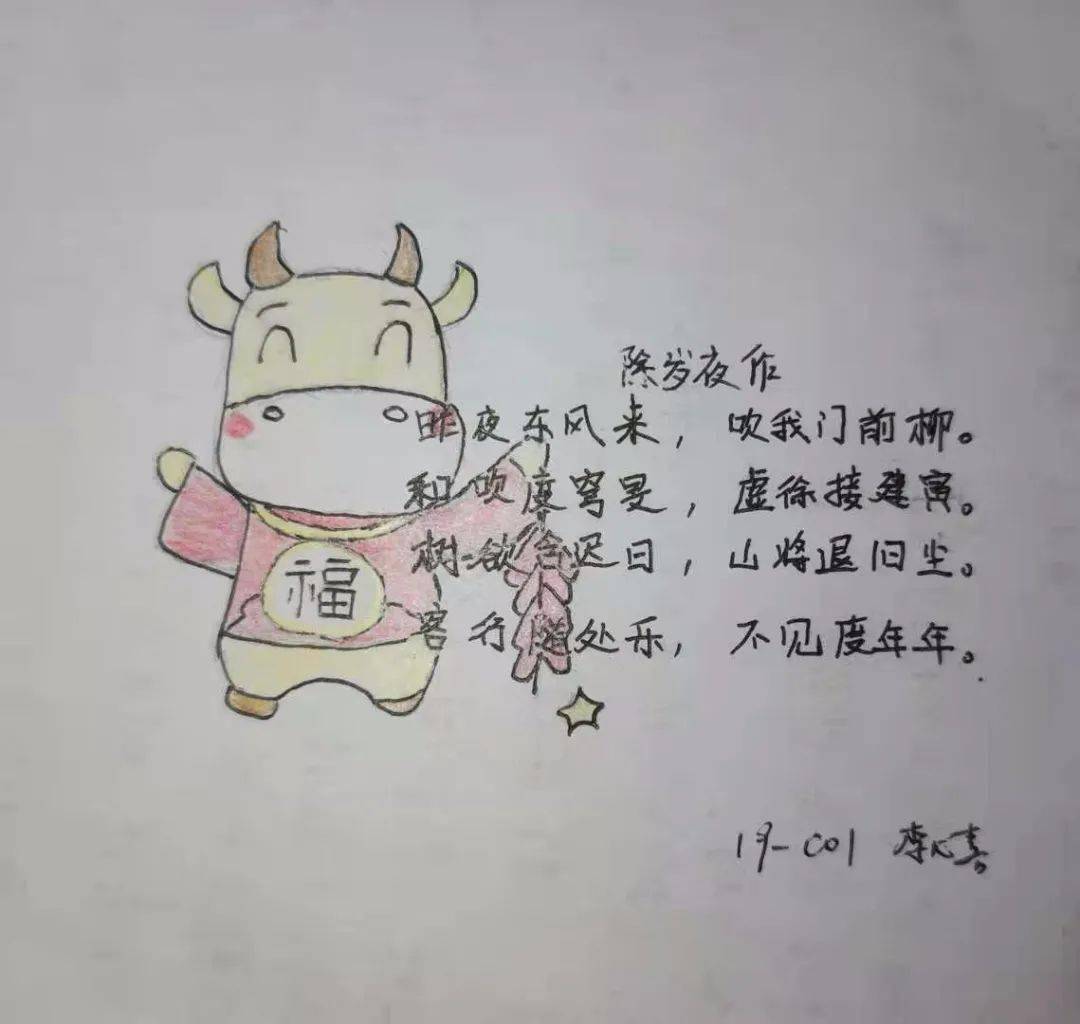 除岁夜作
昨夜东风来，吹我门前柳。
和吹度穹旻，虚徐接建寅。
树欲含迟日，山将退旧尘。
客行随处乐，不见度年年。
福
19-C01 李心喜